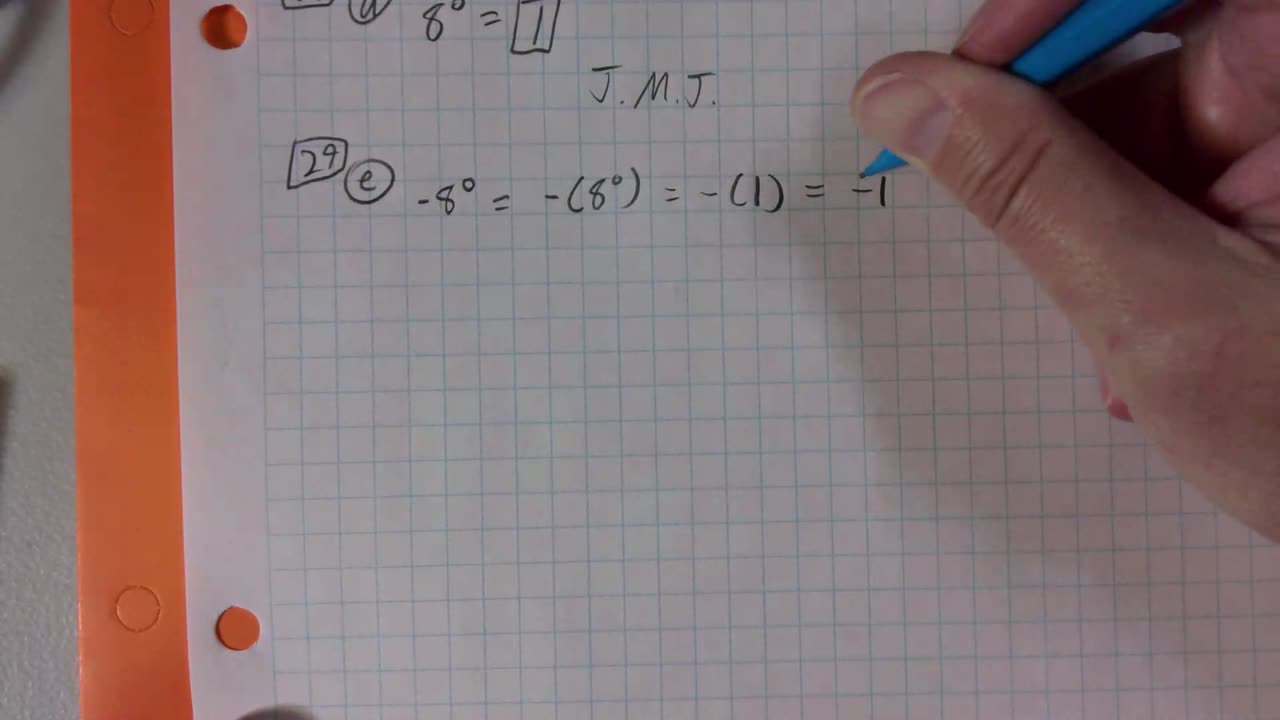 d 8⁰ = 1
J.M.J.
29 e -8⁰ = -(8⁰) = -(1) = -1